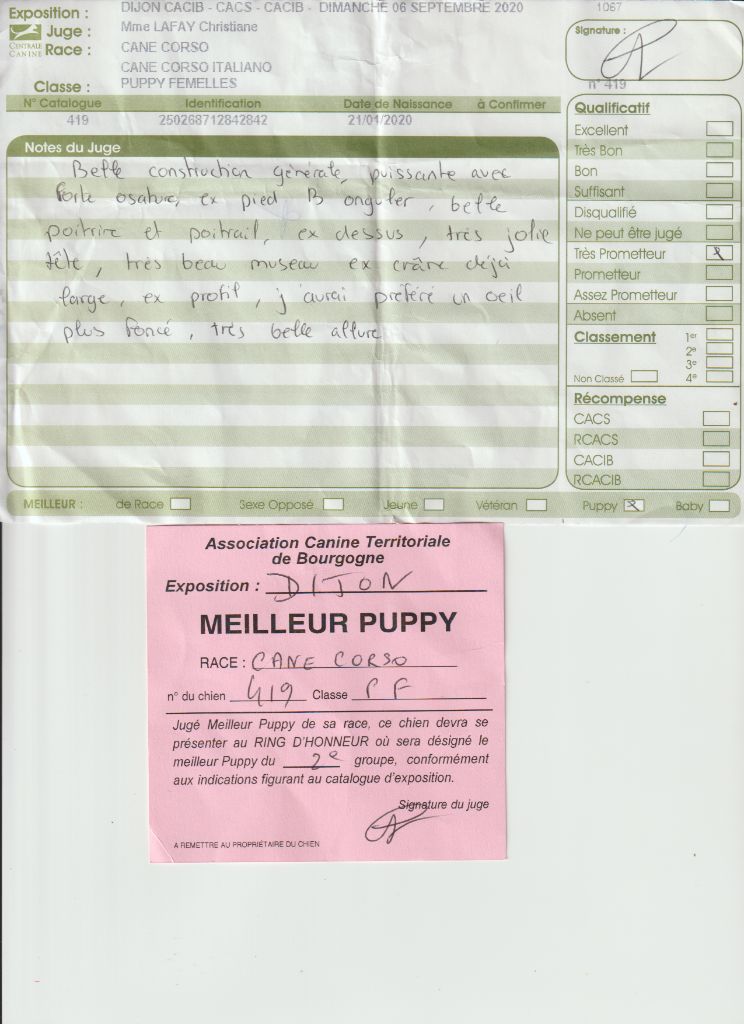 Exposition : DIJON CACIB - CACS - CACIB - DIMANCHE 06 SEPTEMBRE 2020 1067
Juge : Mme LAFAY Christiane
CENTRALE CANINE
Race : CANE CORSO
CANE CORSO ITALIANO
Classe : PUPPY FEMELLES
Signature :
n° 419
N° Catalogue Identification Date de Naissance à Confirmer
419 250268712842842 21/01/2020
Notes du Juge
Belle construction générale, puissante avec
forte osature, ex pied B onguler, belle
poitrine et poitrail, ex dessus, très jolie
tête, très beau museau ex crâne déjà
large, ex profil, j'aurai préféré un oeil
plus foncé, très belle allure
Qualificatif
Excellent
Très Bon
Bon
Suffisant
Disqualifié
Ne peut être jugé
Très Prometteur
Prometteur
Assez Prometteur
Absent
Classement 1er
2e
3e
Non Classé 4e
Récompense
CACS
RCACS
CACIB
RCACIB
MEILLEUR : de Race Sexe Opposé Jeune Vétéran Puppy Baby
Association Canine Territoriale
de Bourgogne
Exposition : DIJON
MEILLEUR PUPPY
RACE : CANE CORSO
n° du chien 419 Classe PF
Jugé Meilleur Puppy de sa race, ce chien devra se
présenter au RING D'HONNEUR où sera désigné le
meilleur Puppy du 2e groupe, conformément
aux indications figurant au catalogue d'exposition.
Signature du juge
A REMETTRE AU PROPRIÉTAIRE DU CHIEN